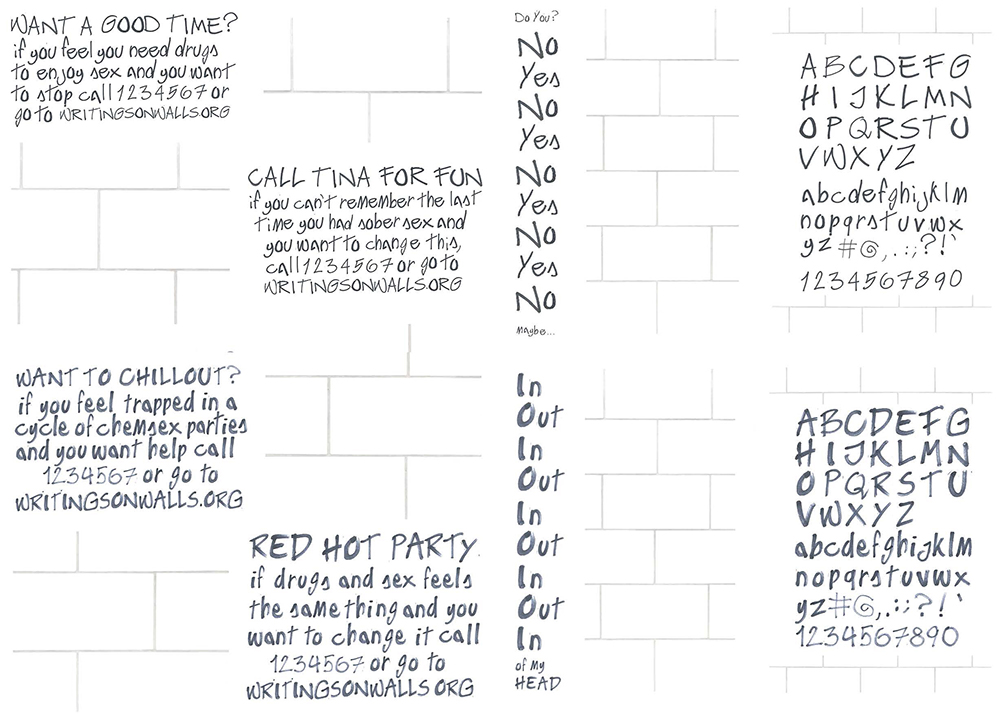 WANT A GOOD TIME?
if you feel you need drugs
to enjoy sex and you want
to stop call 1234567 or
go to WRITINGSONWALLS.ORG
CALL TINA FOR FUN
if you can't remember the last
time you had sober sex and
you want to change this,
call 1234567 or go to
WRITINGSONWALLS.ORG
WANT TO CHILLOUT?
if you feel trapped in a
cycle of chemsex parties
and you want help call
1234567 or go to
WRITINGSONWALLS.ORG
RED HOT PARTY.
if drugs and sex feels
the same thing and you
want to change it call
1234567 or go to
WRITINGSONWALLS.ORG
Do You?
No
Yes
No
Yes
No
Yes
No
Yes
No
Maybe...
In
Out
In
Out
In
Out
In
Out
In
of My
HEAD
ABCDEFG
HIJKLMN
OPQRSTU
VWXYZ
abcdefghijklm
nopqrstuvwx
yz #@,.:;?!`
1234567890
ABCDEFG
HIJKLMN
OPQRSTU
VWXYZ
abcdefghijklm
nopqrstuvwx
yz#@,.:;?!`
1234567890